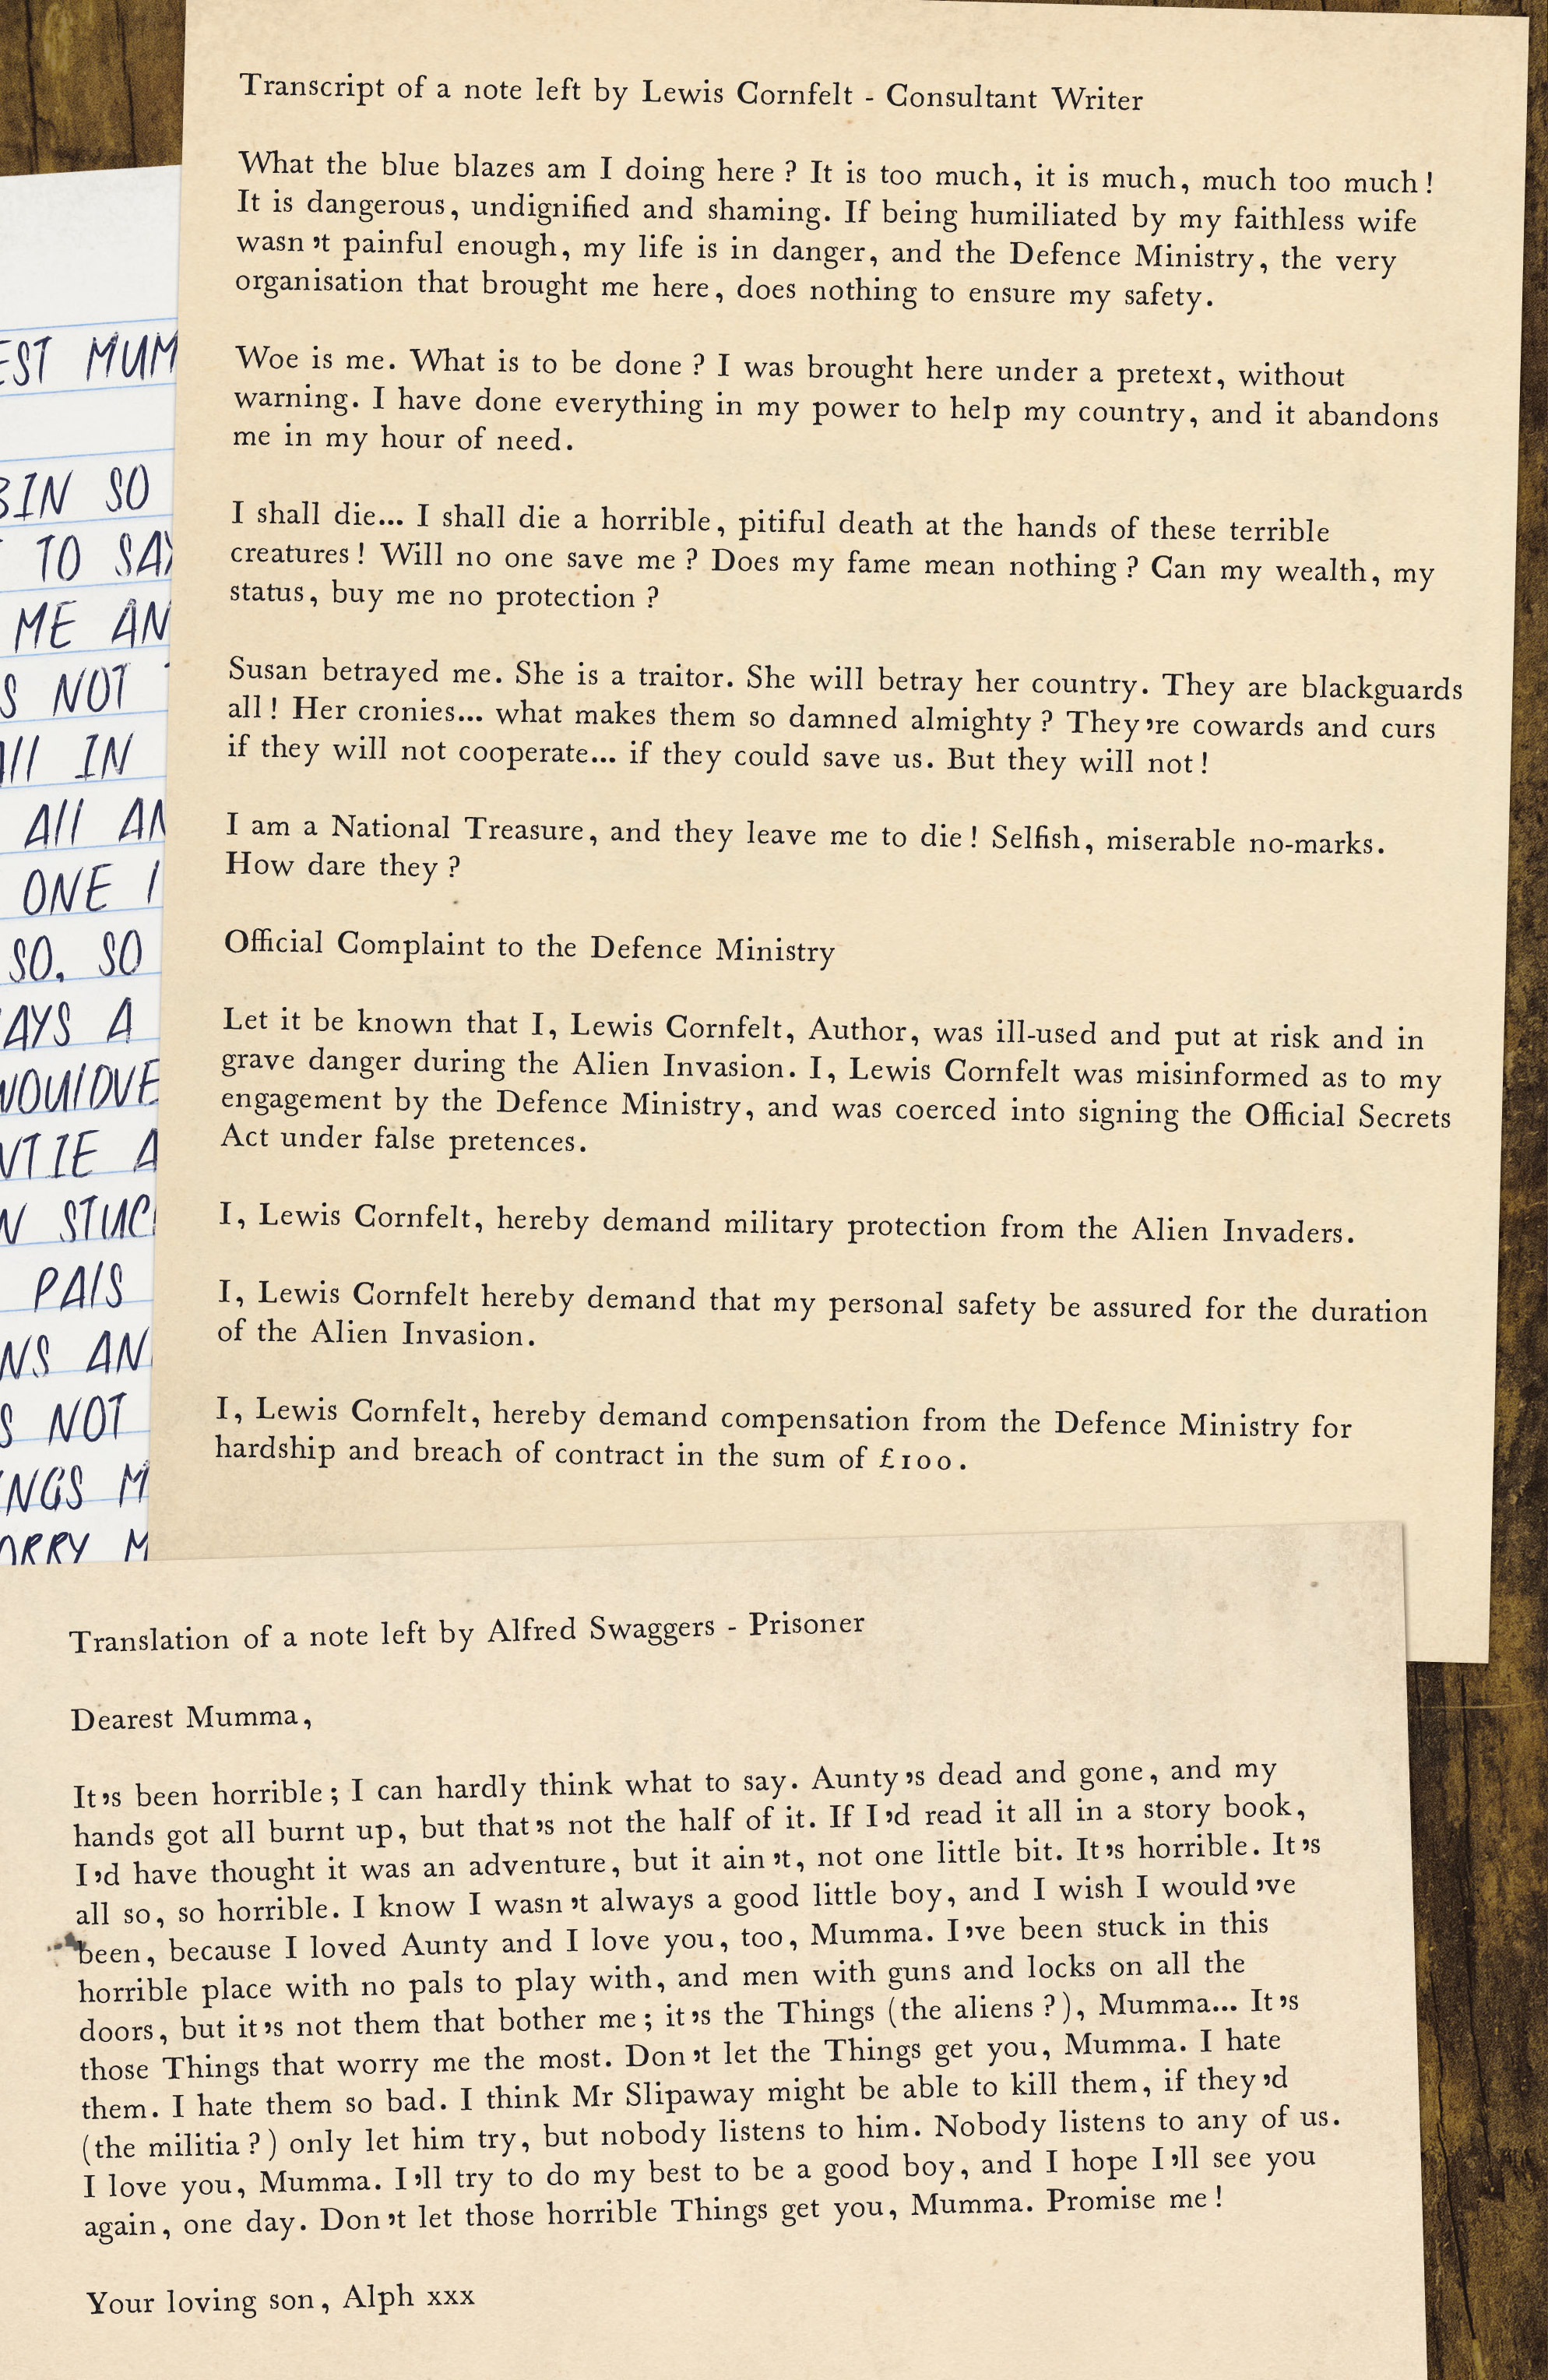 Transcript of a note left by Lewis Cornfelt - Consultant Writer
What the blue blazes am I doing here? It is too much, it is much, much too much!
It is dangerous, undignified and shaming. If being humiliated by my faithless wife
wasn't painful enough, my life is in danger, and the Defence Ministry, the very
organisation that brought me here, does nothing to ensure my safety.
Woe is me. What is to be done? I was brought here under a pretext, without
warning. I have done everything in my power to help my country, and it abandons
me in my hour of need.
I shall die... I shall die a horrible, pitiful death at the hands of these terrible
creatures! Will no one save me? Does my fame mean nothing? Can my wealth, my
status, buy me no protection?
Susan betrayed me. She is a traitor. She will betray her country. They are blackguards
all! Her cronies... what makes them so damned almighty? They're cowards and curs
if they will not cooperate... if they could save us. But they will not!
I am a National Treasure, and they leave me to die! Selfish, miserable no-marks.
How dare they?
Official Complaint to the Defence Ministry
Let it be known that I, Lewis Cornfelt, Author, was ill-used and put at risk and in
grave danger during the Alien Invasion. I, Lewis Cornfelt was misinformed as to my
engagement by the Defence Ministry, and was coerced into signing the Official Secrets
Act under false pretences.
I, Lewis Cornfelt, hereby demand military protection from the Alien Invaders.
I, Lewis Cornfelt hereby demand that my personal safety be assured for the duration
of the Alien Invasion.
I, Lewis Cornfelt, hereby demand compensation from the Defence Ministry for
hardship and breach of contract in the sum of £100.
SO
TO
ME
NOT
IN
All
ONE
SO. SO
A
PAlS
NOT
Translation of a note left by Alfred Swaggers - Prisoner
Dearest Mumma,
It's been horrible; I can hardly think what to say. Aunty's dead and gone, and my
hands got all burnt up, but that's not the half of it. If I'd read it all in a story book,
I'd have thought it was an adventure, but it ain't, not one little bit. It's horrible. It's
all so, so horrible. I know I wasn't always a good little boy, and I wish I would've
been, because I loved Aunty and I love you, too, Mumma. I've been stuck in this
horrible place with no pals to play with, and men with guns and locks on all the
doors, but it's not them that bother me; it's the Things (the aliens?), Mumma... It's
those Things that worry me the most. Don't let the Things get you, Mumma. I hate
them. I hate them so bad. I think Mr Slipaway might be able to kill them, if they'd
(the militia?) only let him try, but nobody listens to him. Nobody listens to any of us.
I love you, Mumma. I'll try to do my best to be a good boy, and I hope I'll see you
again, one day. Don't let those horrible Things get you, Mumma. Promise me!
Your loving son, Alph xxx